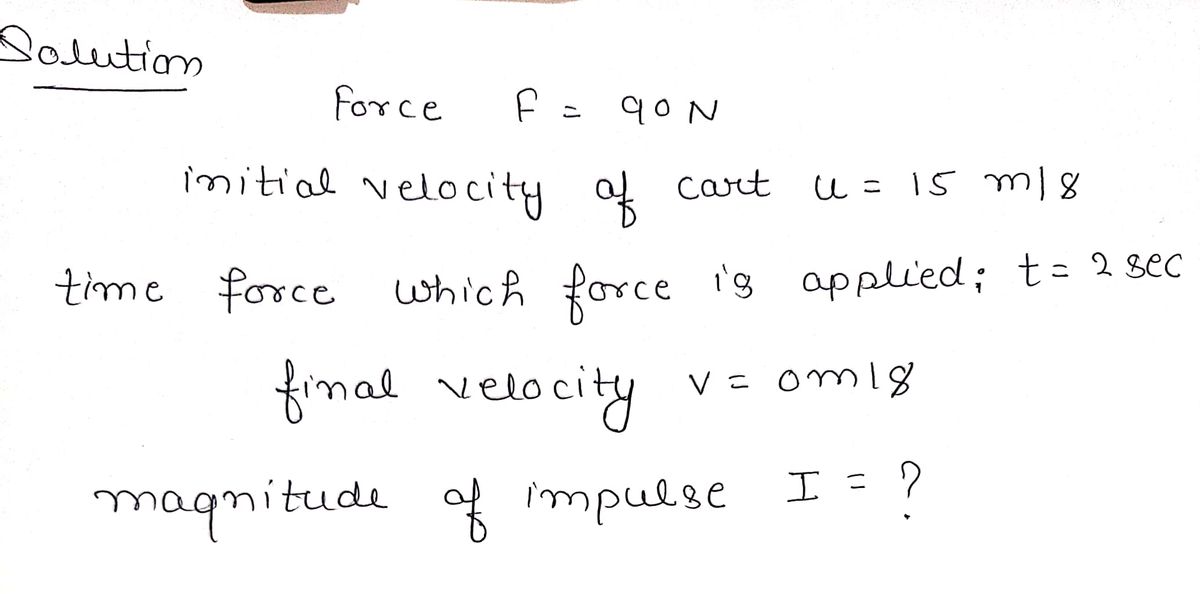 Solution
Force F = 90 N
initial velocity of cart u = 15 m/s
time force which force is applied; t = 2 sec
final velocity v = 0 m/s
magnitude of impulse I = ?